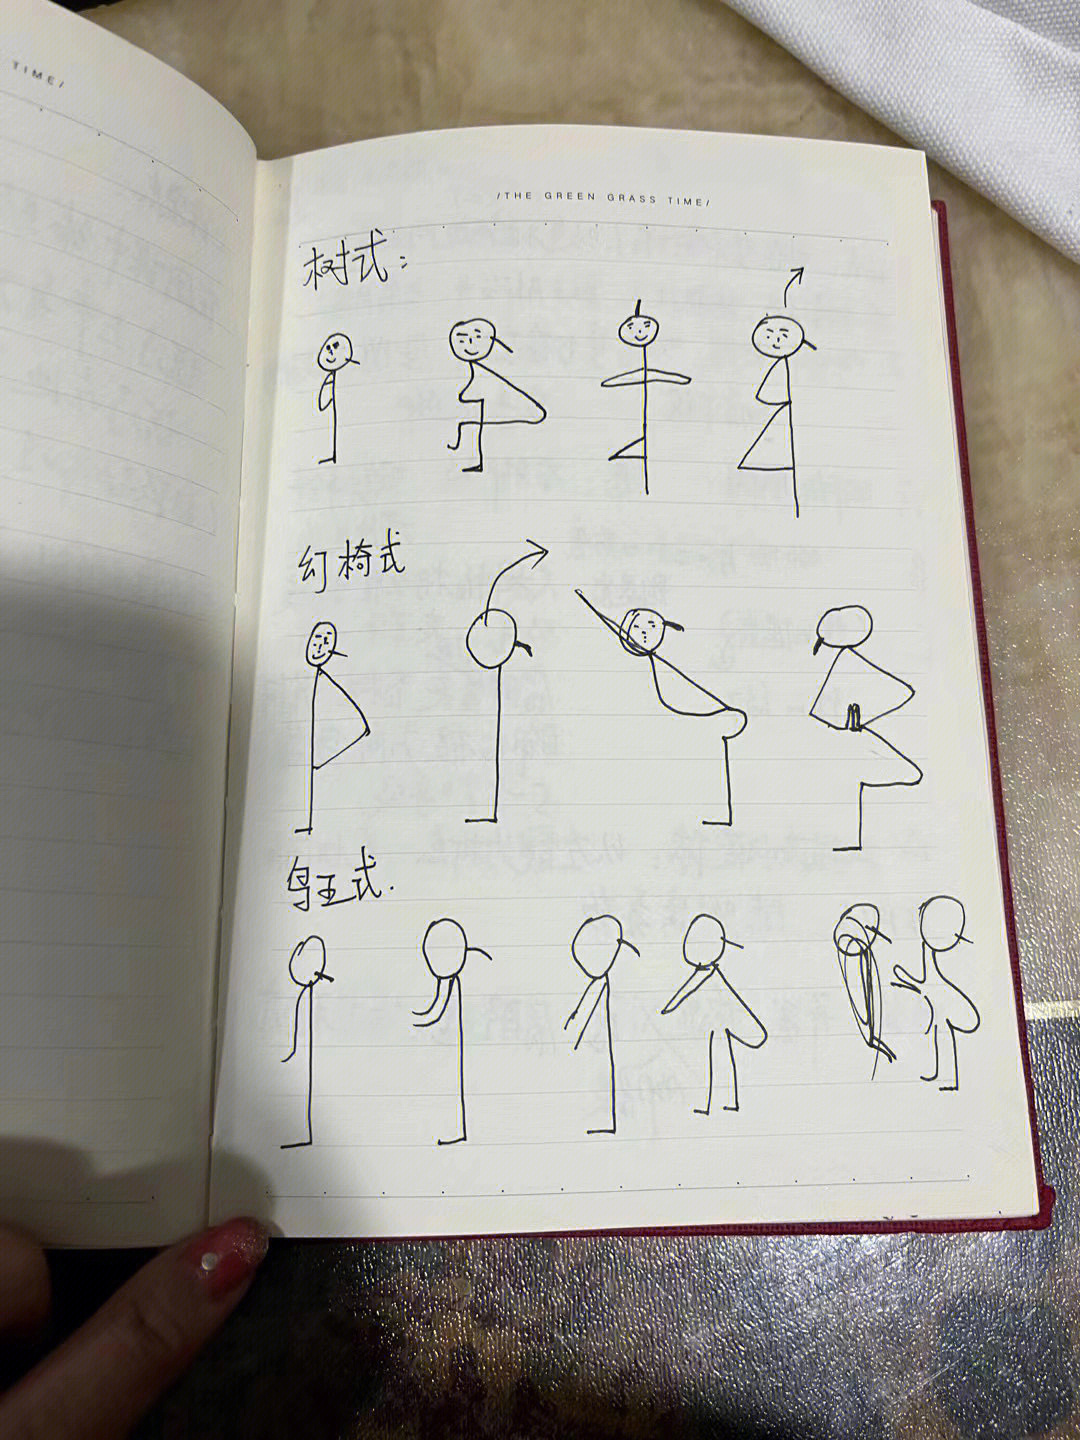 TIME/
/THE GREEN GRASS TIME/
树式:
幻椅式
鸟王式.